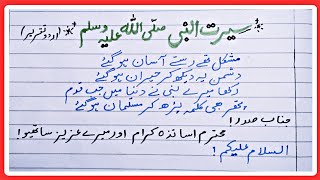 سیرت النبی صلی اللہ علیہ وسلم
(اردو تقریر)
مشکل تھے رستے آسان ہو گئے
دشمن یہ دیکھ کر حیران ہو گئے
رکھا میرے نبی نے دنیا میں جب قدم
پتھر بھی کلمہ پڑھ کر مسلمان ہو گئے
جناب صدر!
محترم اساتذہ کرام اور میرے عزیز ساتھیو!
السلام علیکم!